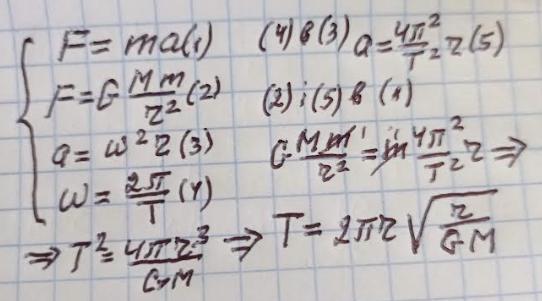 F = ma (1)
F = G Mm/r² (2)
a = ω²r (3)
ω = 2π/T (4)
(4) в (3) a = 4π²/T² r (5)
(2) i (5) в (1)
G Mm/r² = m 4π²/T² r ⇒
⇒ T² = 4πr³/GM ⇒ T = 2πr √(r/GM)